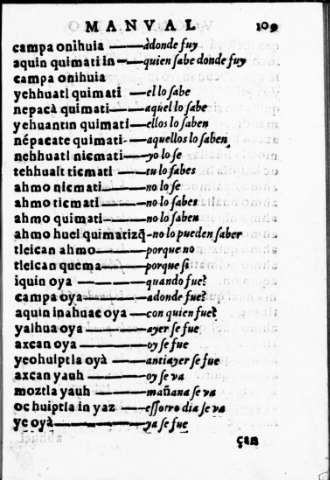 MANVAL 109
campa onihuia ——— àdonde fuy
aquin quimati in— quien sabe donde fuy
campa onihuia
yehhuatl quimati —el lo sabe
nepacà quimati—— aquel lo sabe
yehuantin quimati —ellos lo saben
népacate quimati- —aquellos lo saben
nehhuatl nicmati —yo lo se
tehhualt ticmati —tu lo sabes
ahmo nicmati———no lo se
ahmo ticmati ———no lo sabes
ahmo quimati———no lo saben
ahmo huel quimatizq̃ -no lo pueden saber
tleican ahmo———porque no
tleican quema———porque si
iquin oya ————quando fue?
campa oya————adonde fue?
aquin inahuac oya —con quien fue?
yalhua oya———ayer se fue
axcan oya————oy se fue
yeohuiptla oyà ——antiayer se fue
axcan yauh ———oy se va
moztla yauh ———mañana se va
oc huiptla in yaz —essotro dia se va
ye oyà————ya se fue
çan